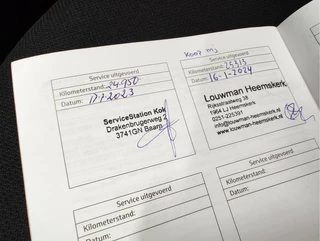 Service uitgevoerd
Kilometerstand: 24950
Datum:
ServiceStation Kok
Drakenburgerweg 2
3741GN Baarn
Service uitgevoerd
Kilometerstand:
Datum: 16-1-2024
Louwman Heemskerk
Rijksstraatweg 38
1964 LJ Heemskerk
0251-225391
info@louwman-heemskerk.nl
www.louwman-heemskerk.nl
Service uitgevoerd
Kilometerstand:
Datum:
Service uitgevoerd
Kilometerstand:
Datum: